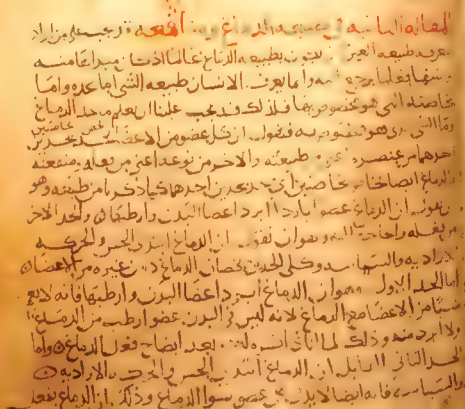 المقالة الثانية في طبيعة الدماغ ومنفعته قد يجب على من اراد
معرفه طبيعه العين ان يكون بطبيعه الدماغ عالما اذ كان مبداها منه
ومنتهى فعلها يرجع اليه وانما يعرف الانسان طبيعه الشي اما بحده واما
بخاصته التي هو مخصوص بها فلذلك قد يجب علينا ان نعلم ما حد الدماغ
وما الشي الذي هو مخصوص به فنقول ان كل عضو من الاعضا يحد بحدين
احدهما من عنصره وطبيعته والاخر من نوعه اعني من فعله ومنفعته
والدماغ ايضا خاصه بخاصتين اي يحد بحدين احدهما كما ذكرنا من طبيعته وهو
ان يقولوا ان الدماغ عضو بارد ابرد اعضا البدن وارطبها والحد الاخر
من فعله وهو ان نقول ان الدماغ ابتدا الحس والحركه
الاراديه والسياسه وكلى الحدين يخصان الدماغ دون غيره من الاعضا
اما الحد الاول وهو ان الدماغ ابرد اعضا البدن وارطبها فانه لا يعم
شيا من الاعضا مع الدماغ لانه ليس في البدن عضو ارطب من الدماغ
ولا ابرد منه وذلك لما انا ذاكره بعد ايضاح فعل الدماغ واما
الحد الثاني القايل ان الدماغ ابتدا الحس والحركه الاراديه
والسياسه فانه ايضا لا يدل على عضو سوا الدماغ وذلك ان الدماغ يفعل